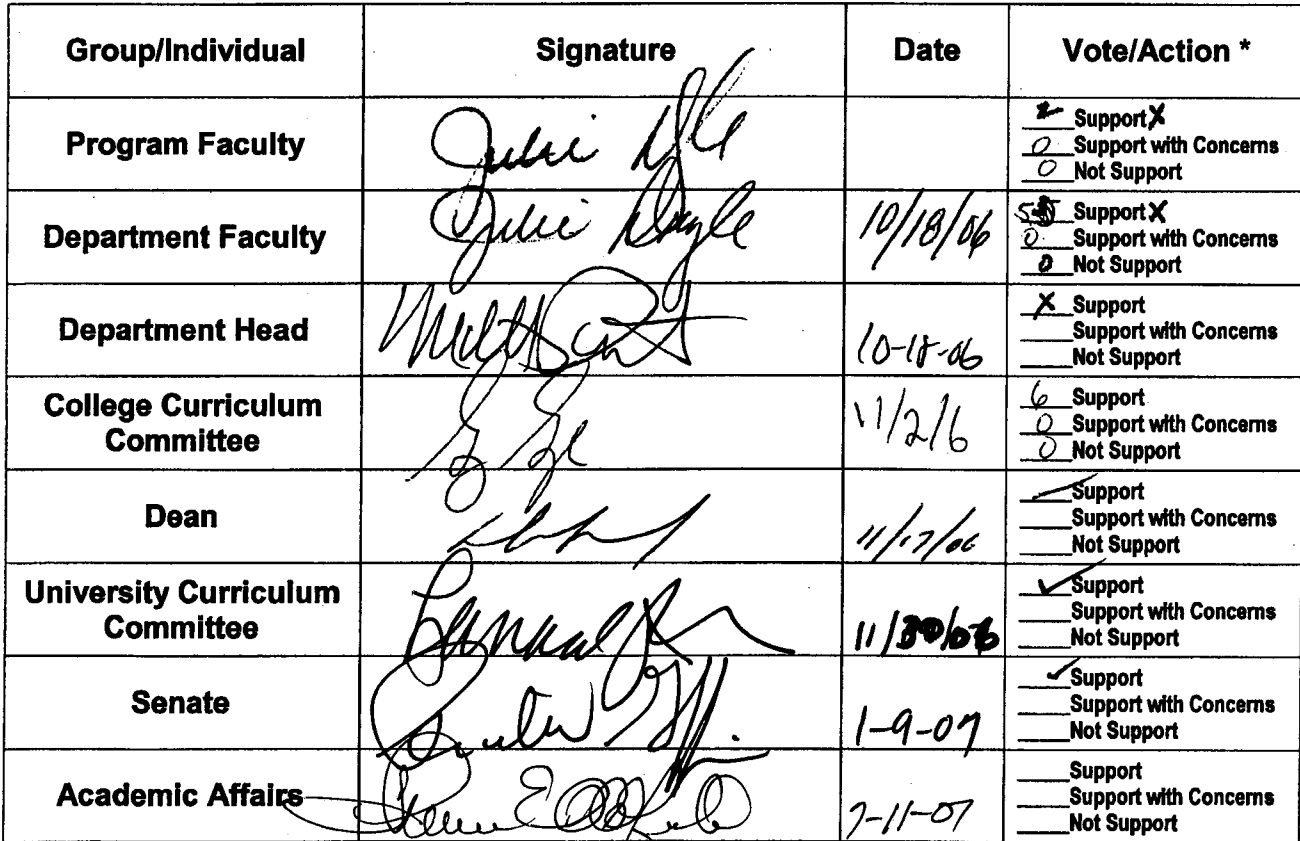 Group/Individual Signature Date Vote/Action *
Program Faculty Julie
Support X
0 Support with Concerns
0 Not Support
Department Faculty Julie Doyle 10/18/06
Support X
0 Support with Concerns
0 Not Support
Department Head 10-18-06
X Support
Support with Concerns
Not Support
College Curriculum
Committee
11/2/6
6 Support
0 Support with Concerns
0 Not Support
Dean 11/17/06
Support
Support with Concerns
Not Support
University Curriculum
Committee
11/30/06
✓ Support
Support with Concerns
Not Support
Senate 1-9-07
✓ Support
Support with Concerns
Not Support
Academic Affairs
Support
Support with Concerns
Not Support